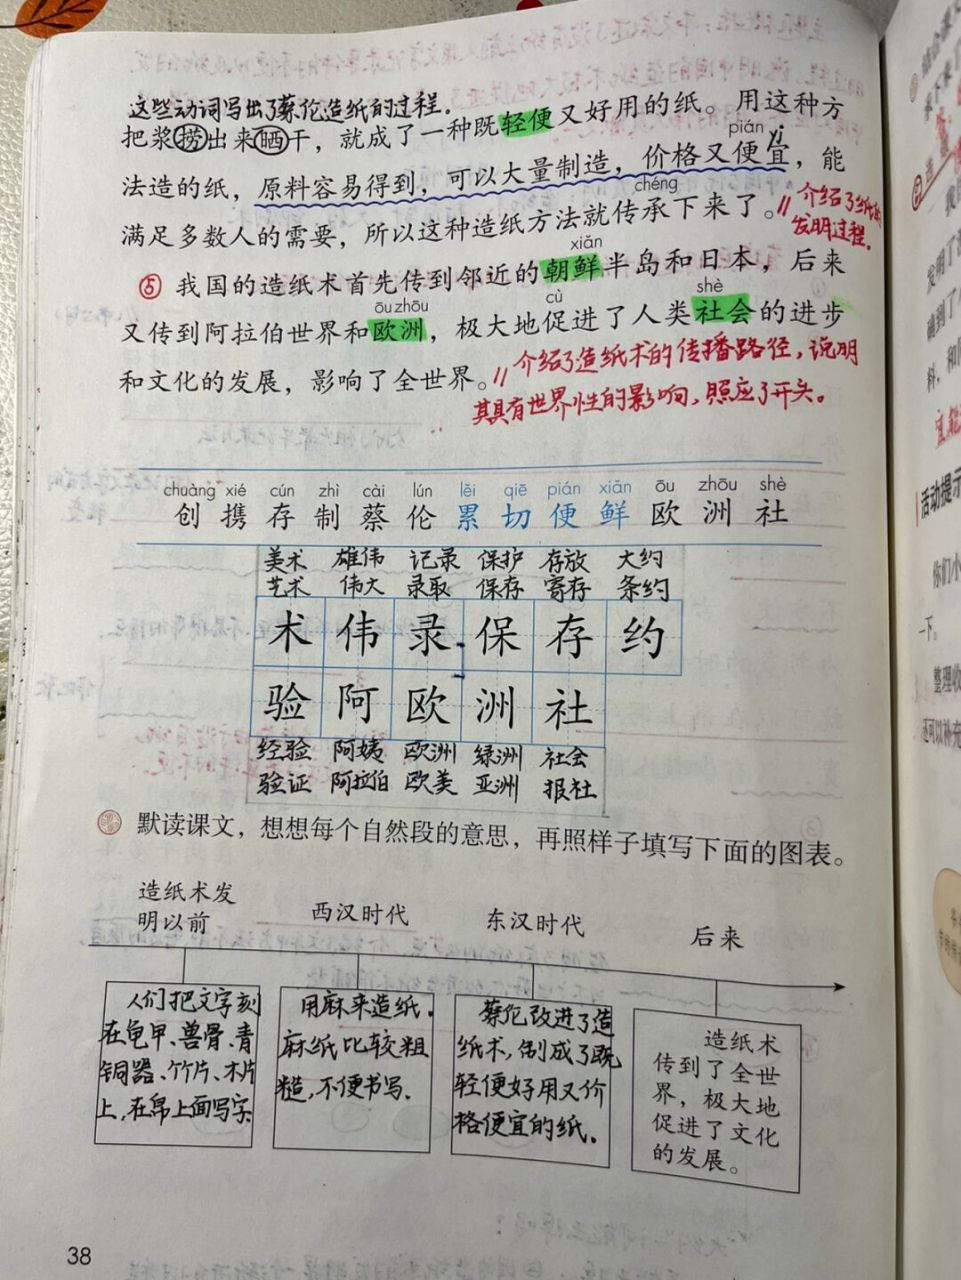 这些动词写出了蔡伦造纸的过程.
把浆捞出来晒干，就成了一种既轻便又好用的纸。用这种方
pián yí
法造的纸，原料容易得到，可以大量制造，价格又便宜，能
chéng
满足多数人的需要，所以这种造纸方法就传承下来了。
介绍了纸的
发明过程.
xiǎn
⑤ 我国的造纸术首先传到邻近的朝鲜半岛和日本，后来
ōu zhōu cù shè
又传到阿拉伯世界和欧洲，极大地促进了人类社会的进步
和文化的发展，影响了全世界。
介绍了造纸术的传播路径，说明
其具有世界性的影响，照应了开头。
chuàng xié cún zhì cài lún lěi qiē pián xiǎn ōu zhōu shè
创 携 存 制 蔡 伦 累 切 便 鲜 欧 洲 社
美术 雄伟 记录 保护 存放 大约
艺术 伟大 录取 保存 寄存 条约
术 伟 录 保 存 约
验 阿 欧 洲 社
经验 阿姨 欧洲 绿洲 社会
验证 阿拉伯 欧美 亚洲 报社
默读课文，想想每个自然段的意思，再照样子填写下面的图表。
造纸术发
明以前
西汉时代
东汉时代
后来
人们把文字刻
在龟甲、兽骨、青
铜器、竹片、木片
上，在帛上面写字
用麻来造纸.
麻纸比较粗
糙，不便书写.
蔡伦改进了造
纸术，制成了既
轻便好用又价
格便宜的纸.
造纸术
传到了全世
界，极大地
促进了文化
的发展。
38
活动提示
你们小
一下。
整理收
还可以补充